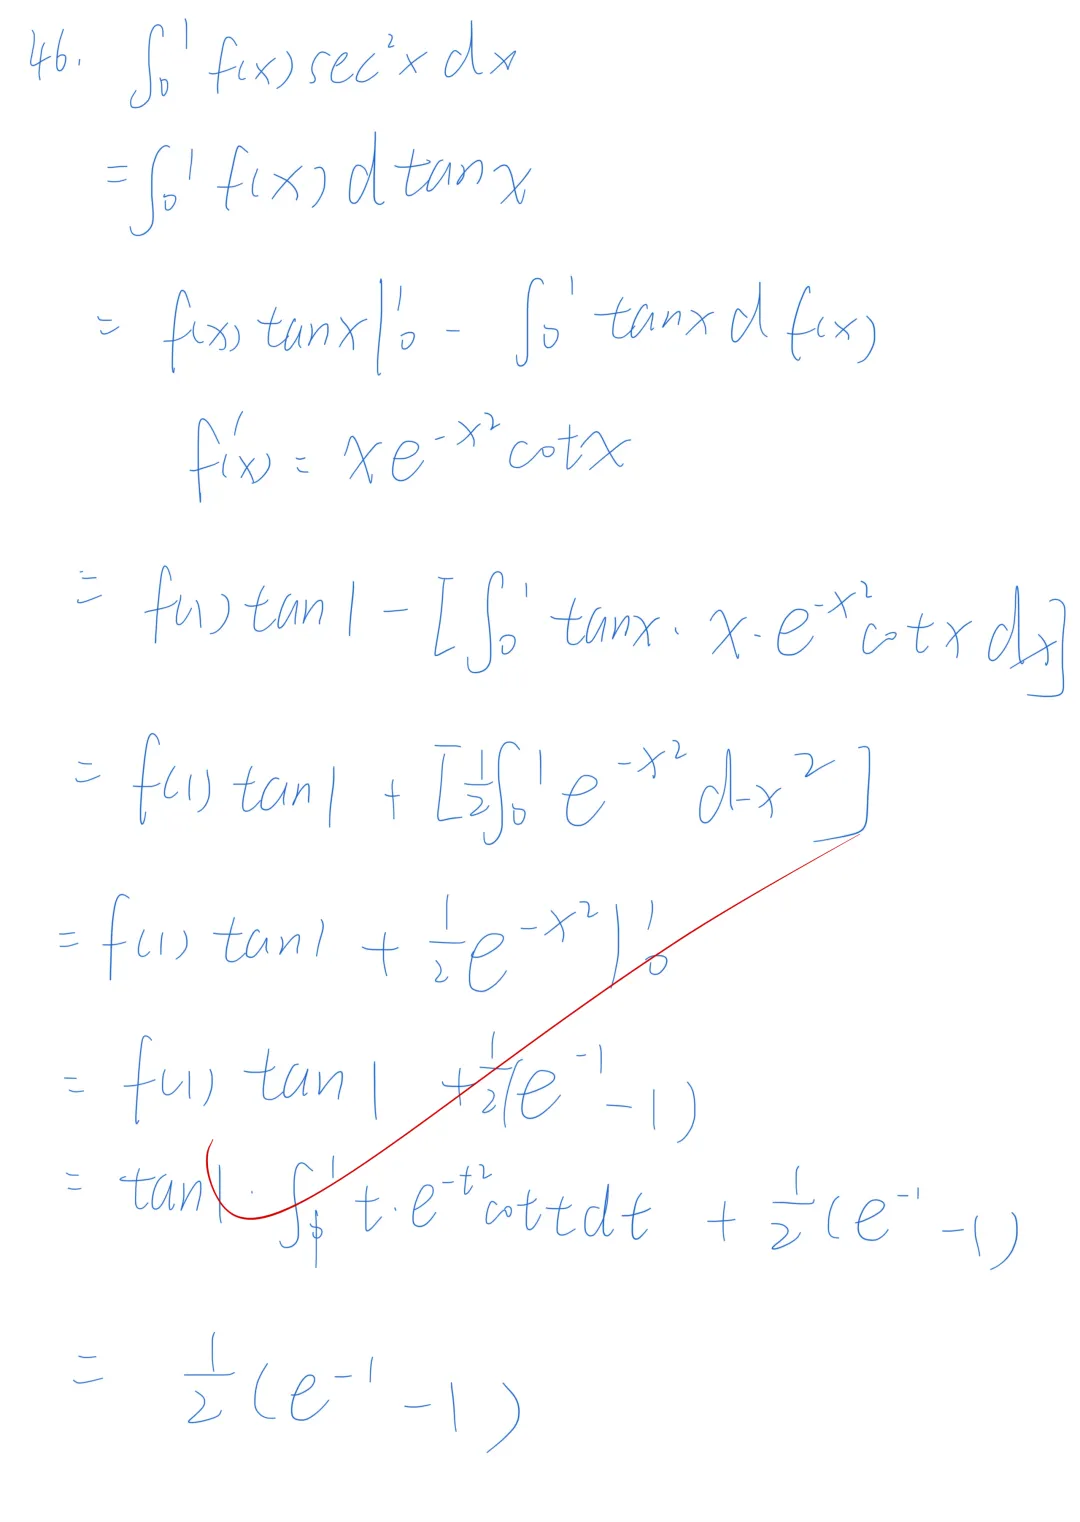 46. ∫₀¹ f(x) sec²x dx
= ∫₀¹ f(x) d tanx
= f(x) tanx |₀¹ - ∫₀¹ tanx d f(x)
f'(x) = x e^{-x²} cotx
= f(1) tan1 - [∫₀¹ tanx · x · e^{-x²} cotx dx]
= f(1) tan1 + [½∫₀¹ e^{-x²} d-x²]
= f(1) tan1 + ½e^{-x²} |₀¹
= f(1) tan1 + ½(e^{-1} - 1)
= tan1 · ∫₁¹ t · e^{-t²} cot t dt + ½(e^{-1} - 1)
= ½(e^{-1} - 1)